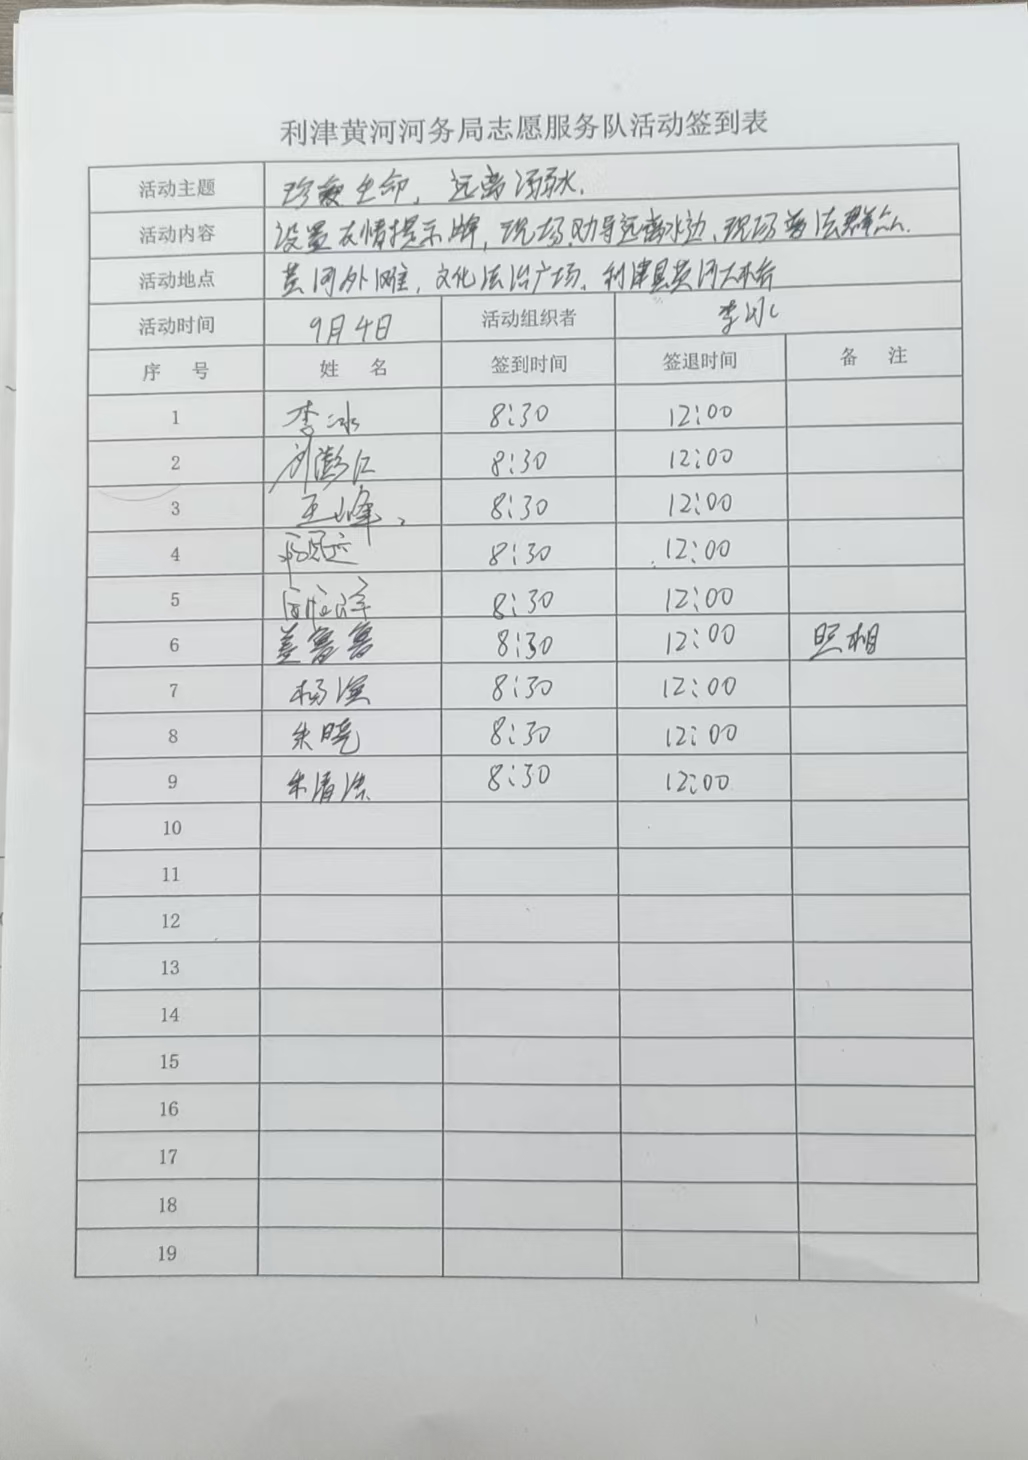 利津黄河河务局志愿服务队活动签到表
活动主题 珍爱生命，远离溺水.
活动内容 设置友情提示牌，现场劝导远离水边、现场普法群众.
活动地点 黄河外滩，文化法治广场、利津县黄河大桥
活动时间 9月4日 活动组织者 李冰
序 号 姓 名 签到时间 签退时间 备 注
1 李冰 8:30 12:00
2 刘澎江 8:30 12:00
3 王峰 8:30 12:00
4 8:30 12:00
5 8:30 12:00
6 姜鲁鲁 8:30 12:00 照相
7 杨滨 8:30 12:00
8 朱晓 8:30 12:00
9 朱清法 8:30 12:00
10
11
12
13
14
15
16
17
18
19